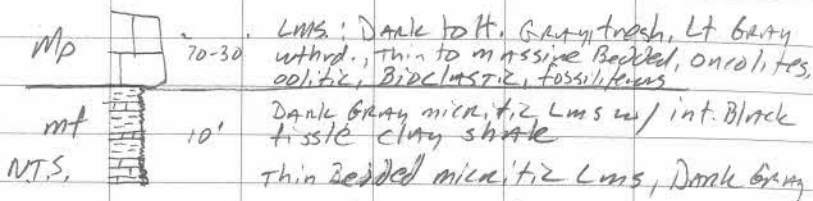 Mp 70-30' Lms.: Dark to lt. Gray, fresh, Lt Gray
wthrd., Thin to massive Bedded, oncolites,
oolitic, Bioclastic, fossiliferus
mf 10' Dark Gray micritic Lms w/ int. Black
fissle clay shale
N.T.S. Thin Bedded micritic Lms, Dark Gray